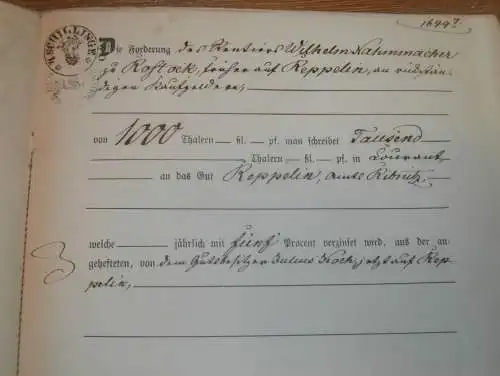 1699?
SCHILLINGE
Die Forderung des Rentiers Wilhelm Kahmmacher
zu Rostock, früher auf Reppelin, an rückstän-
digen Kaufgeldern,
von 1000 Thalern ßl. pf. man schreibet Tausend
Thalern ßl. pf. in Courant
an das Gut Reppelin, Amts Ribnitz,
welche jährlich mit fünf Procent verzinset wird, aus der an-
gehefteten, von dem Gutsbesitzer Julius Koch, jetzt auf Rep-
pelin,
3